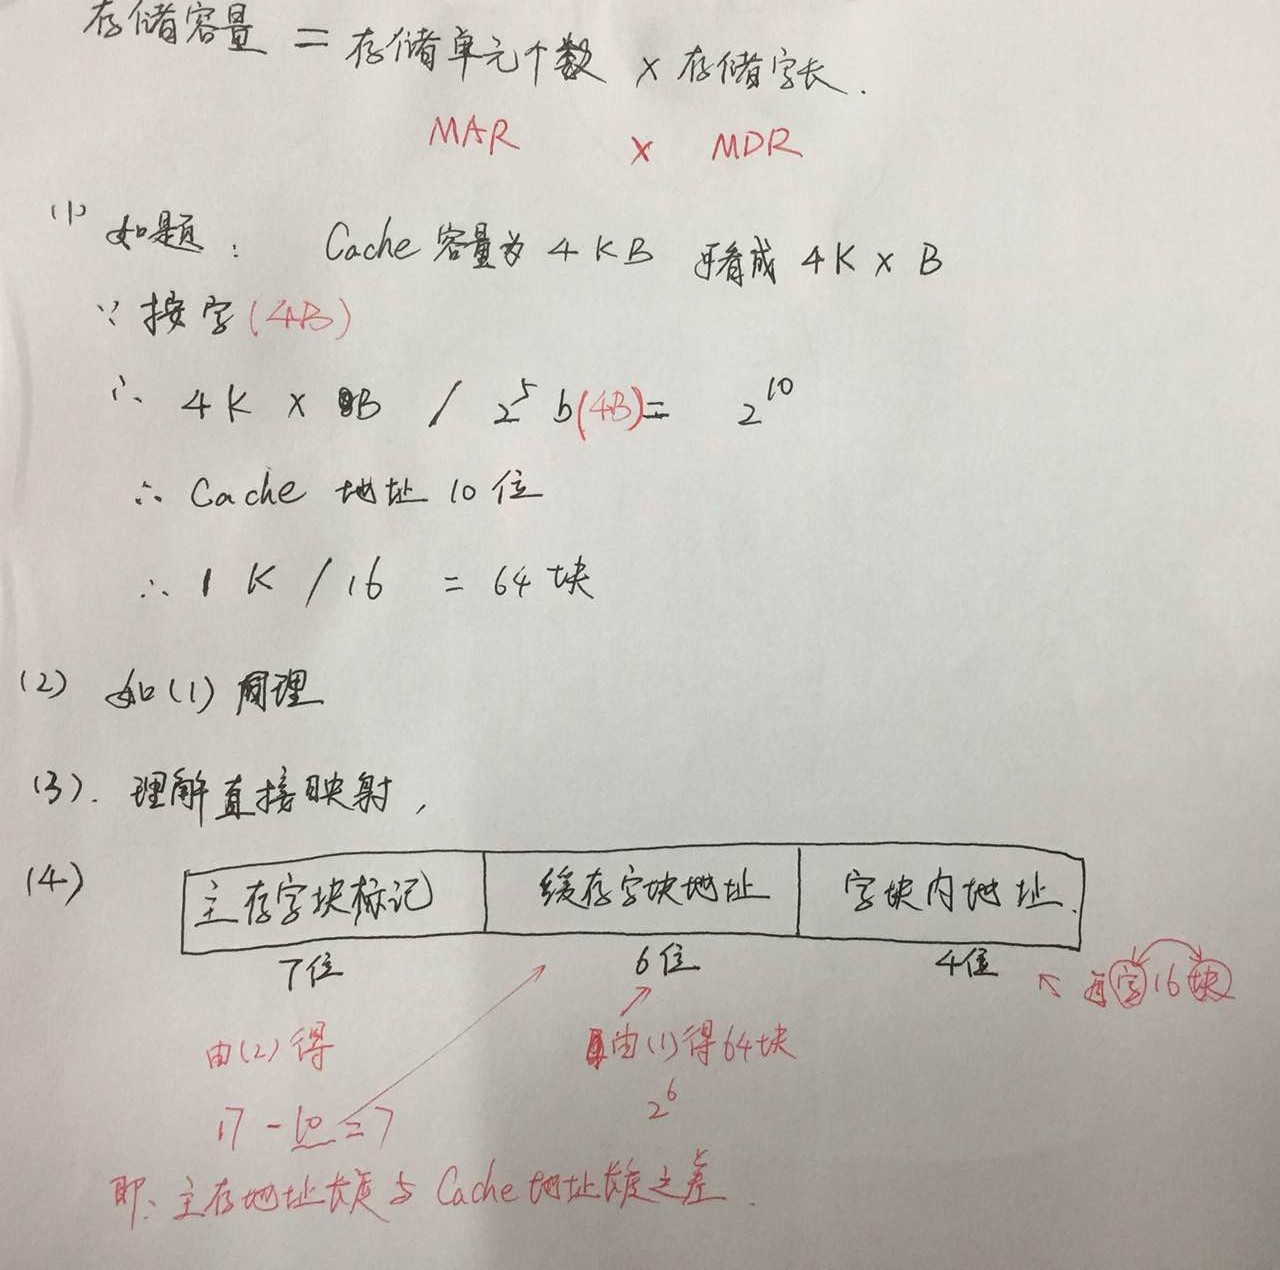 存储容量 = 存储单元个数 × 存储字长.
MAR × MDR
(1) 如题: Cache 容量为 4KB 看成 4K × B
∵ 按字(4B)
∴ 4K × B / 2^5 b(4B) = 2^10
∴ Cache 地址 10 位
∴ 1K / 16 = 64 块
(2) 如(1)同理
(3). 理解直接映射,
(4) 主存字块标记 缓存字块地址 字块内地址.
7位 6位 4位 每字16块
由(2)得 由(1)得64块
17 - 10 = 7 2^6
即: 主存地址长度与 Cache 地址长度之差.